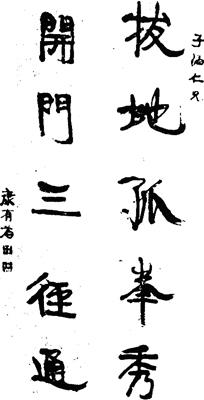 子滔仁兄
拔地孤峯秀
開門三徑通
康有為